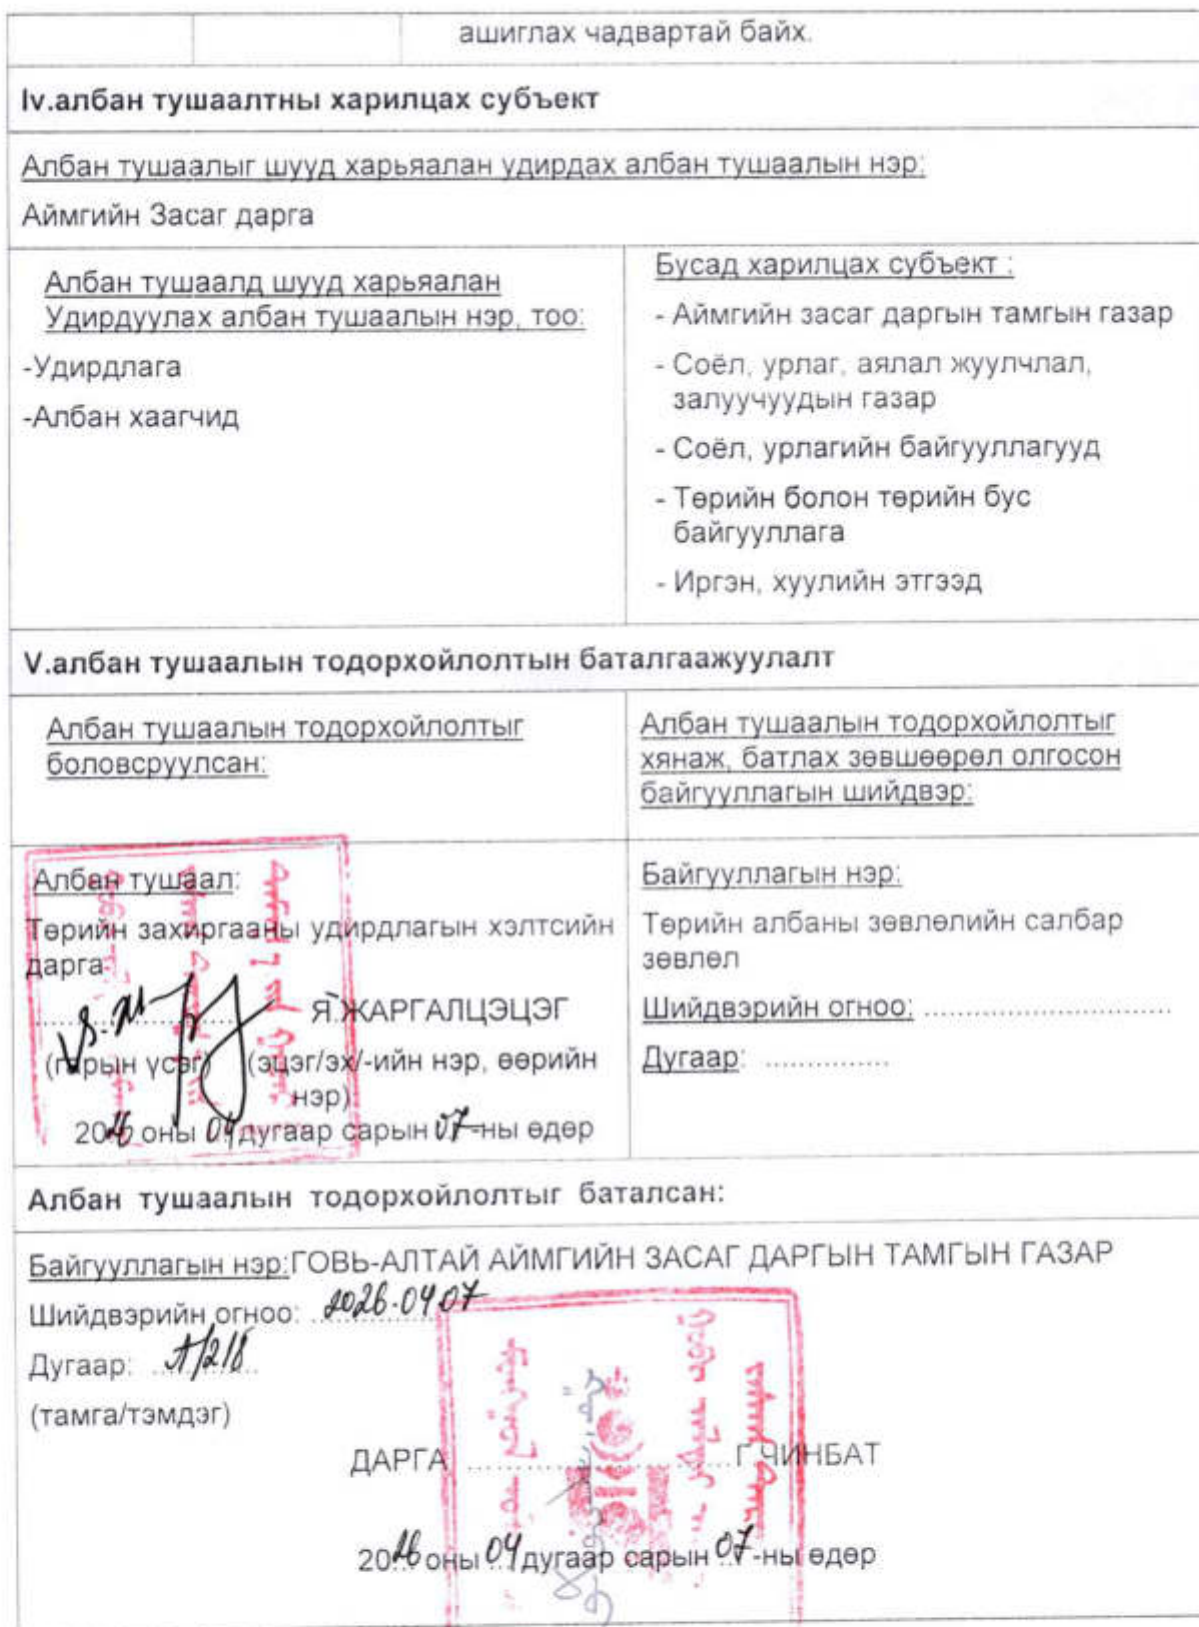 ашиглах чадвартай байх.
Iv.албан тушаалтны харилцах субъект
Албан тушаалыг шууд харьяалан удирдах албан тушаалын нэр:
Аймгийн Засаг дарга
Албан тушаалд шууд харьяалан
Удирдуулах албан тушаалын нэр, тоо:
-Удирдлага
-Албан хаагчид
Бусад харилцах субъект :
- Аймгийн засаг даргын тамгын газар
- Соёл, урлаг, аялал жуулчлал,
залуучуудын газар
- Соёл, урлагийн байгууллагууд
- Төрийн болон төрийн бус
байгууллага
- Иргэн, хуулийн этгээд
V.албан тушаалын тодорхойлолтын баталгаажуулалт
Албан тушаалын тодорхойлолтыг
боловсруулсан:
Албан тушаалын тодорхойлолтыг
хянаж, батлах зөвшөөрөл олгосон
байгууллагын шийдвэр:
Албан тушаал:
Төрийн захиргааны удирдлагын хэлтсийн
дарга
Я.ЖАРГАЛЦЭЦЭГ
(гарын үсэг) (эцэг/эх/-ийн нэр, өөрийн
нэр)
2026 оны 04 дугаар сарын 07-ны өдөр
Байгууллагын нэр:
Төрийн албаны зөвлөлийн салбар
зөвлөл
Шийдвэрийн огноо: ..............................
Дугаар: ...............
Албан тушаалын тодорхойлолтыг баталсан:
Байгууллагын нэр:ГОВЬ-АЛТАЙ АЙМГИЙН ЗАСАГ ДАРГЫН ТАМГЫН ГАЗАР
Шийдвэрийн огноо: 2026.04.07
Дугаар: А/218
(тамга/тэмдэг)
ДАРГА .............................. Г.ЧИНБАТ
2026 оны 04 дугаар сарын 07-ны өдөр